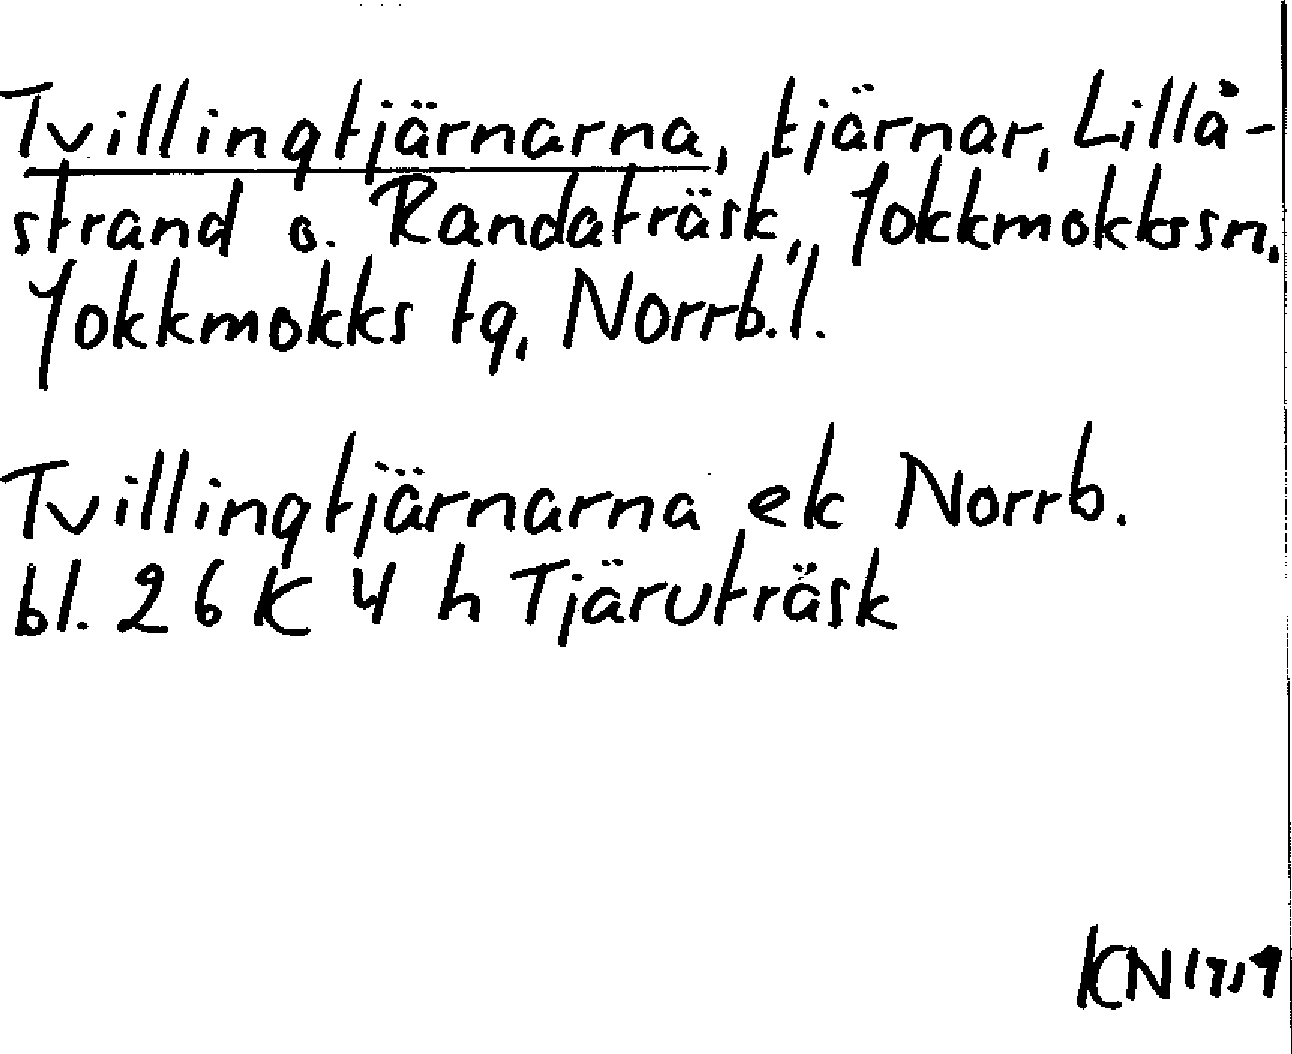 Tvillingtjärnarna, tjärnar, Lillå-
strand o. Randaträsk, Jokkmokks sn,
Jokkmokks tg, Norrb. l.
Tvillingtjärnarna ek Norrb.
bl. 26 K 4 h Tjärutträsk